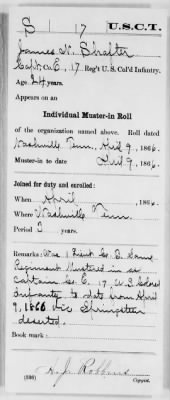 S | 17 | U.S.C.T.
James N. Shafter
Capt., Co. E, 17 Reg't U. S. Col'd Infantry.
Age 24 years.
Appears on an
Individual Muster-in Roll
of the organization named above. Roll dated
Nashville Tenn, April 9, 1866.
Muster-in to date April 9, 1866.
Joined for duty and enrolled:
When April, 1866.
Where Nashville Tenn.
Period 3 years.
Remarks: Was 1 Lieut Co. D. Same
Regiment Mustered in as
Captain Co. E. 17 U S Colored
Infantry to date from April
9, 1866 vice Springsteen
deserted.
Book mark:
(336)
Copyist.